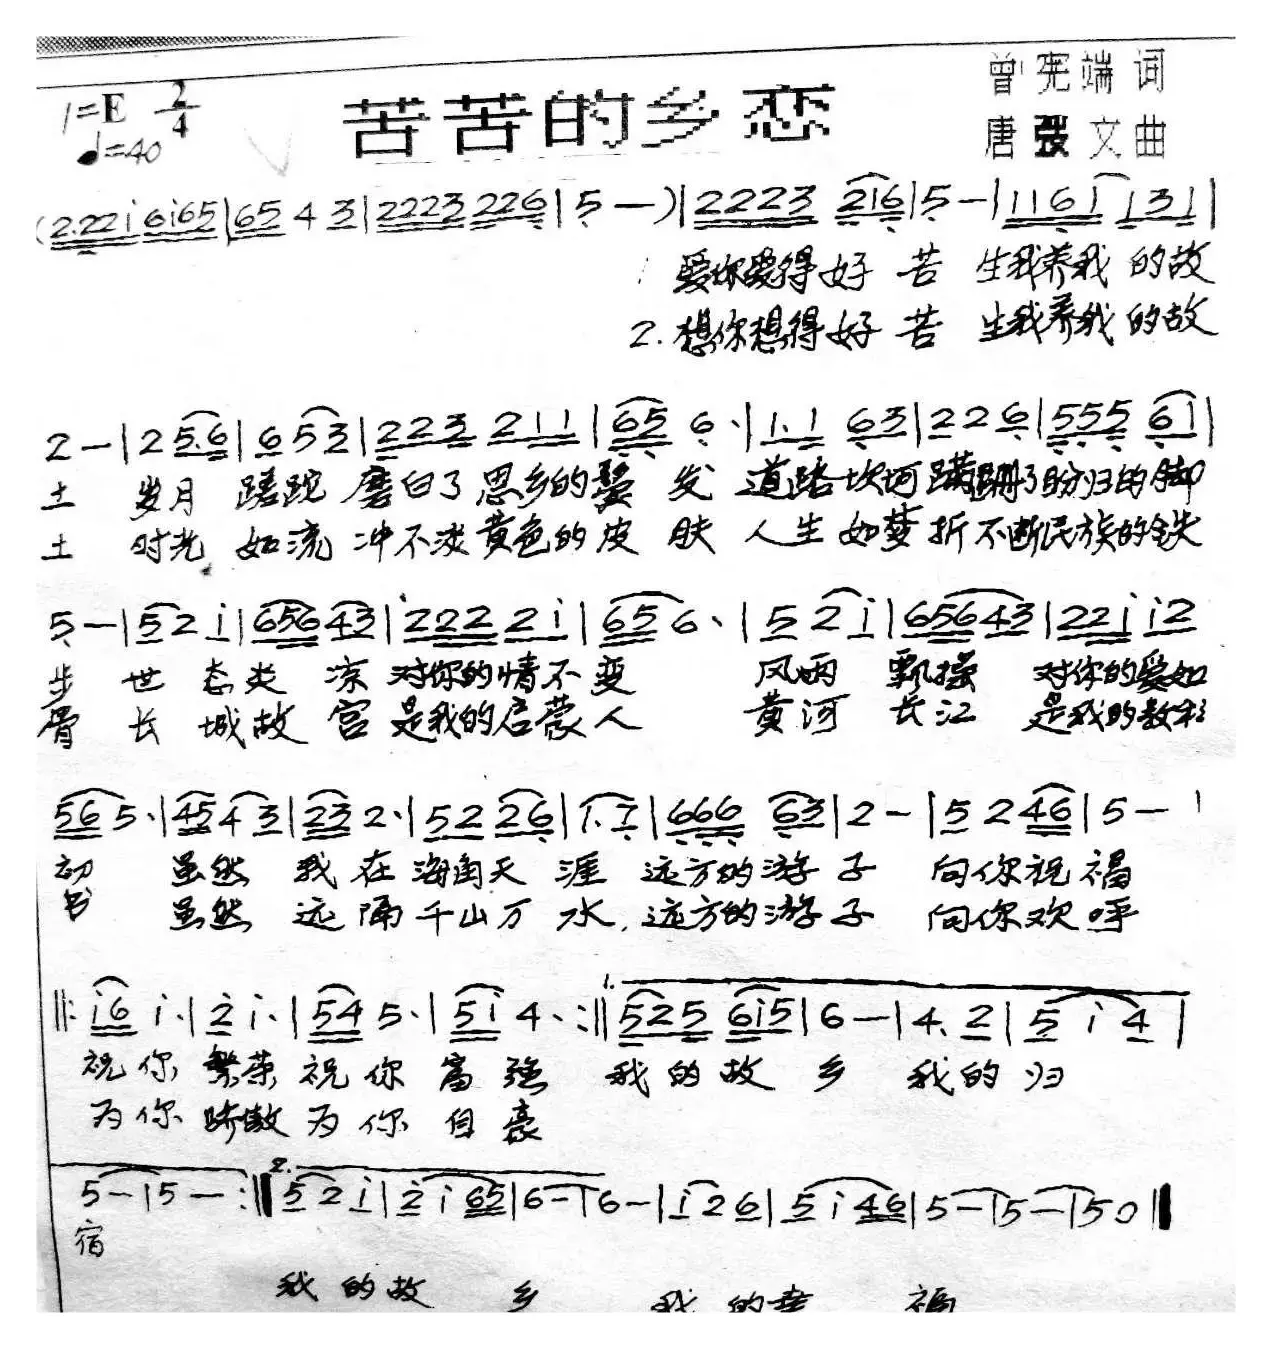 1=E 2/4
♩=40
苦苦的乡恋
曾宪端 词
唐弢文 曲
(2.22i 6i65|65 4 3|2223 226|5 —)|2223 216|5 —|1161 131|
1 爱你爱得好 苦 生我养我 的故
2.想你想得好 苦 生我养我 的故
2 —|2 5.6|6 5 3|223 211|65 6.|1.1 63|2 2 6|555 61|
土 岁月 蹉跎 磨白了思乡的鬓 发 道路坎坷蹒跚了盼归的脚
土 时光 如流 冲不淡黄色的皮 肤 人生如梦折不断民族的铁
5 —|5 2 i|656 43|222 2i|65 6.|5 2 i|656 43|22i i2
步 世 态炎 凉 对你的情不 变 风雨 飘摇 对你的爱如
骨 长 城故 宫 是我的启蒙 人 黄河 长江 是我的教科
56 5.|45 4 3|23 2.|52 26|1.7|666 63|2 —|5 2 46|5 —|
初 虽然 我 在 海角天 涯 远方的游 子 向你祝福
书 虽然 远 隔 千山万 水,远方的游 子 向你欢呼
‖:i6 i.|2 i.|54 5.|5i 4.:‖1.525 6i5|6 —|4. 2|5 i 4|
祝你 繁荣 祝你 富 强 我的故 乡 我的 归
为你 骄傲 为你 自 豪
5 —|5 —:‖2.5 2 i|2 i 65|6 —|6 —|i 2 6|5 i 46|5 —|5 —|5 0‖
宿
我 的故 乡 我 的幸 福